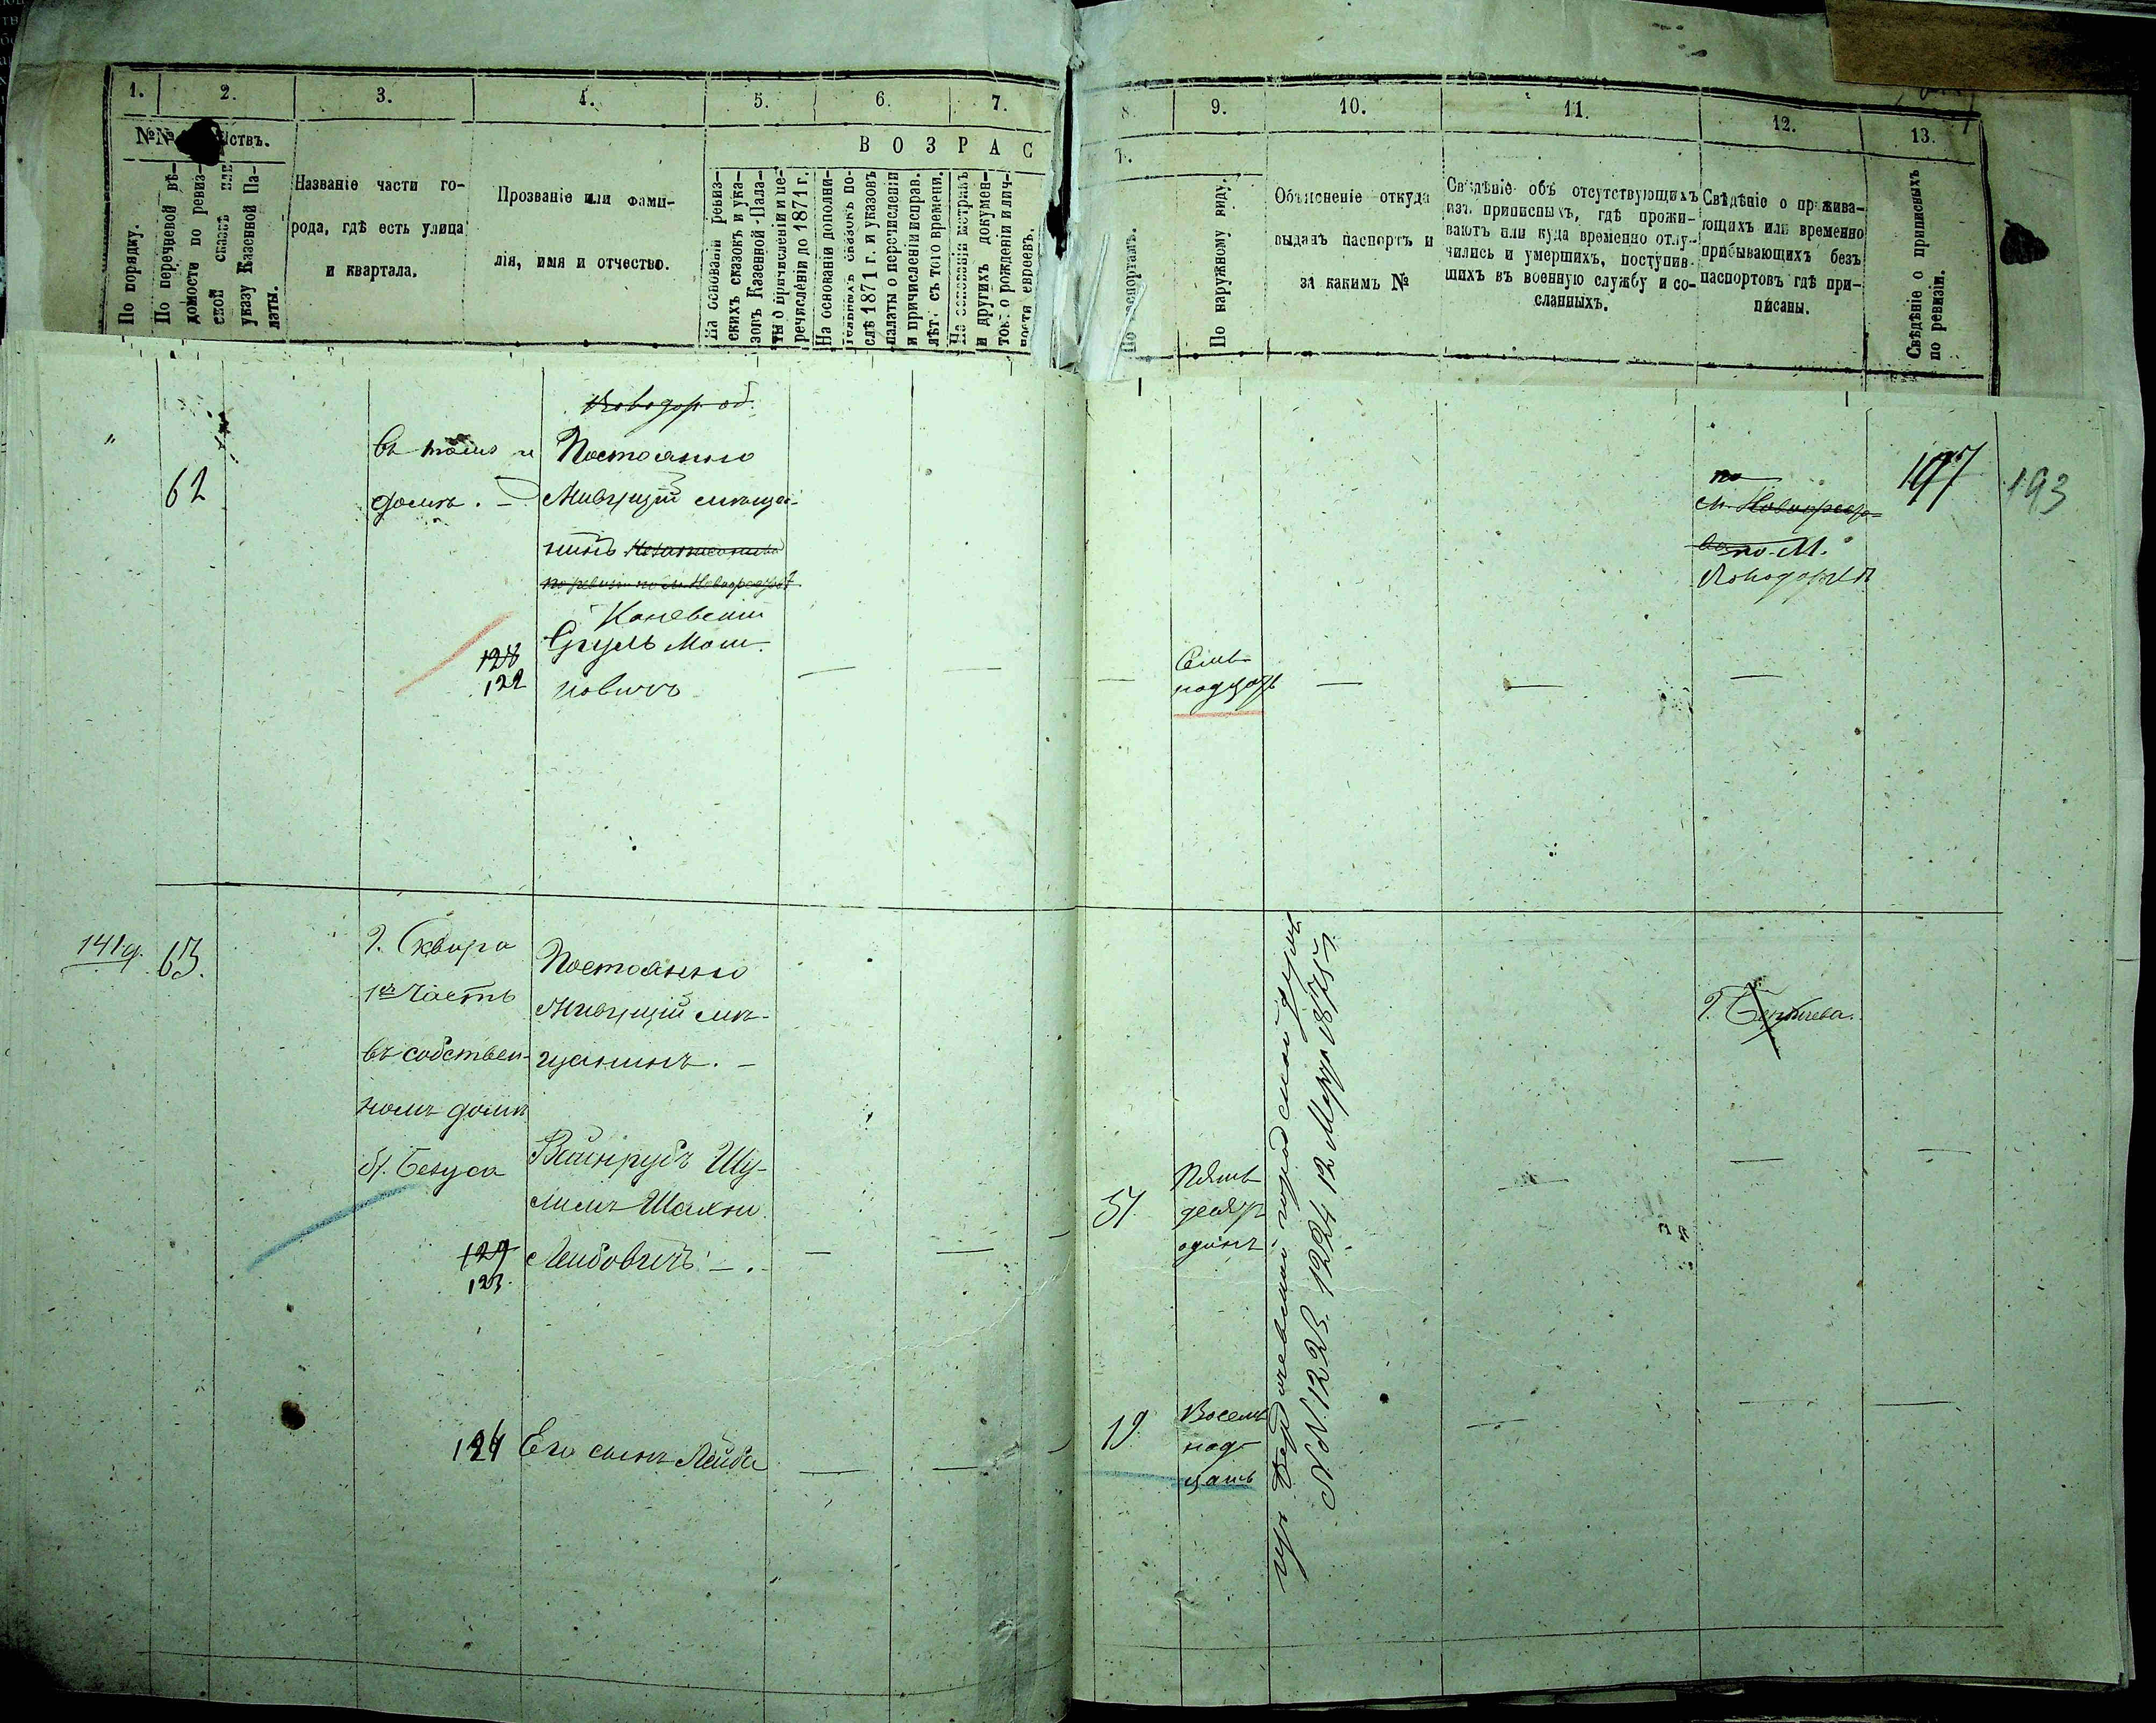 1.
2.
3.
4.
5.
6.
7.
8.
9.
10.
11.
12.
13.
№№
ствъ.
По порядку.
По перечневой вѣ-
домости по ревиз-
ской сказкѣ или
указу Казенной Па-
латы.
Названіе части го-
рода, гдѣ есть улица
и квартала.
Прозваніе или фами-
лія, имя и отчество.
ВОЗРАС
Т.
На основаніи ревиз-
скихъ сказокъ и ука-
зовъ Казенной Пала-
ты о причисленіи и пе-
речисленіи до 1871 г.
На основаніи дополни-
тельныхъ сказокъ по-
слѣ 1871 г. и указовъ
палаты о перечисленіи
и причисленіи исправ.
лѣтъ съ того времени.
На основаніи метрикъ
и другихъ докумен-
товъ о рожденіи и лич-
ности евреевъ.
По паспортамъ.
По наружному виду.
Объясненіе откуда
выданъ паспортъ и
за какимъ №
Свѣдѣніе объ отсутствующихъ
изъ приписныхъ, гдѣ прожи-
ваютъ или куда временно отлу-
чились и умершихъ, поступив-
шихъ въ военную службу и со-
сланныхъ.
Свѣдѣніе о прожива-
ющихъ или временно
прибывающихъ безъ
паспортовъ гдѣ при-
писаны.
Свѣдѣніе о приписныхъ
по ревизіи.
"
62
въ томъ
домѣ. —
Постоянно
Живущій мѣща-
нинъ
Каневскій
Сруль Мош-
ковичъ
128
122
Сем-
надцать
по
по М.
197
193
141 д.
63.
г. Сквира
1я Часть
въ собствен-
номъ домѣ
Постоянно
Живущій мѣ-
щанинъ. —
Вайнрубъ Шу-
лимъ Шахно
Лейбовичъ — .
129
123.
51
Пять
десятъ
одинъ
изъ Бердичевской городской думы
№№ 1223. 1224 12 Марта 1875 г.
г. Бердичева.
124
Его сынъ Лейба
19
Восем
над-
цать